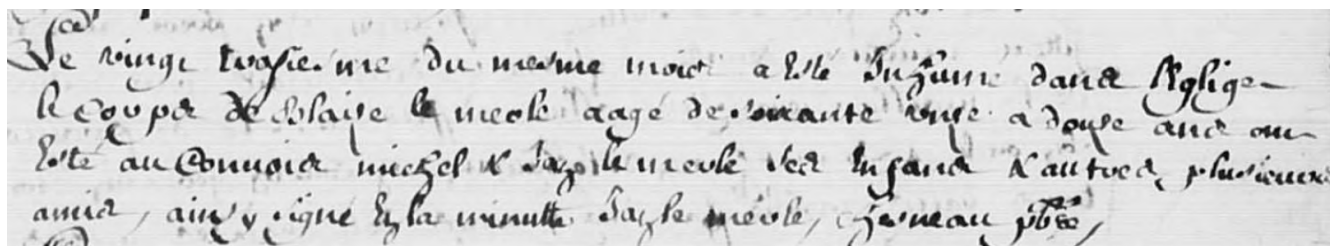 Le vingt troisieme du mesme moies a esté Inhumé dans l'Eglige
le corps de blaise le mesle aagé de soixante unse a douse ans on
Esté au Convoir michel & Jaq le mesle ses Enfans & autres plusieurs
amis, ainsy signé En la minutte Jaq le mesle, pbre,